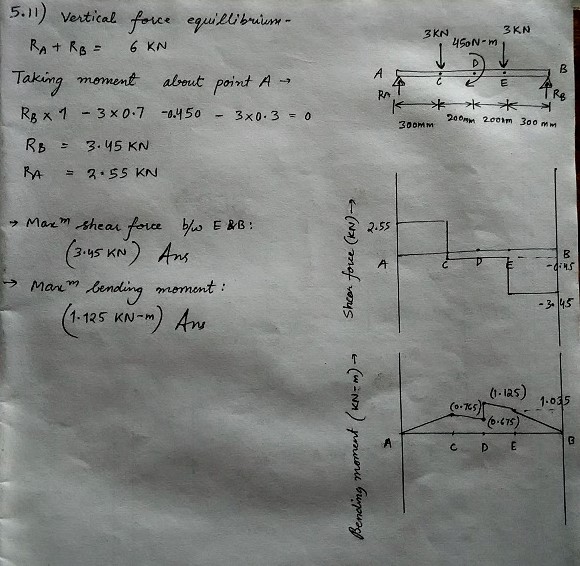 5.11) Vertical force equillibrium-
RA + RB = 6 KN
Taking moment about point A →
RB x 1 - 3x0.7 -0.450 - 3x0.3 = 0
RB = 3.45 KN
RA = 2.55 KN
→ Maxm shear force b/w E & B:
(3.45 KN) Ans
→ Maxm bending moment:
(1.125 KN-m) Ans
3KN 3KN
450N-m
A C D E B
RA RB
300mm 200mm 200mm 300mm
Shear force (KN) →
2.55
A C D E B
-0.45
-3.45
Bending moment (KN-m) →
(1.125)
1.035
(0.765)
(0.675)
A C D E B